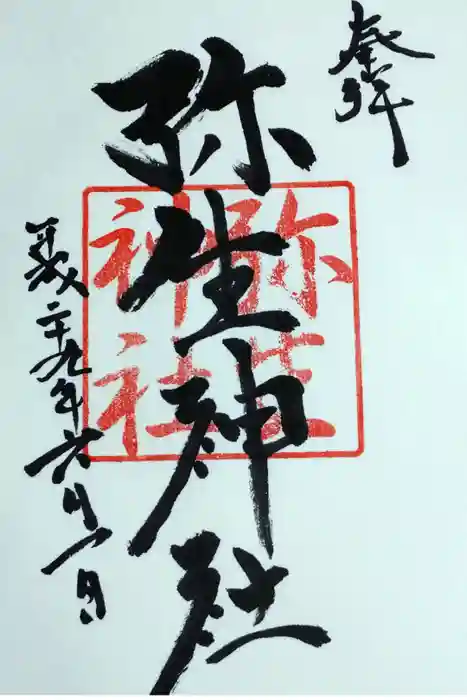 奉拝
弥生神社
弥生
神社
平成二十九年六月一日